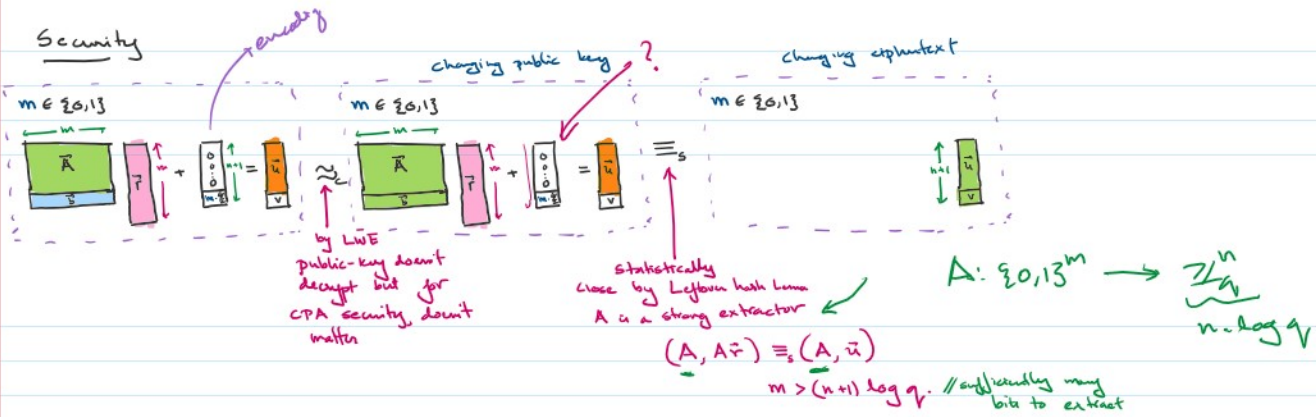 Security
encoding
changing public key
?
changing ciphertext
m ∈ {0,1}
m ∈ {0,1}
m ∈ {0,1}
m
A⃗
b⃗
r⃗
m
+
0
0
0
n+1
=
u⃗
v
≈c
m
A⃗
b
r⃗
m
+
0
0
0
=
u⃗
v
≡s
n+1
u⃗
by LWE
public-key doesn't
decrypt but for
CPA security, doesn't
matter
statistically
close by Leftover hash Lemma
A is a strong extractor
(A, Ar⃗) ≡s (A, u⃗)
m > (n+1) log q. // sufficiently many
bits to extract
A: {0,1}^m → ℤ_q^n
n·log q